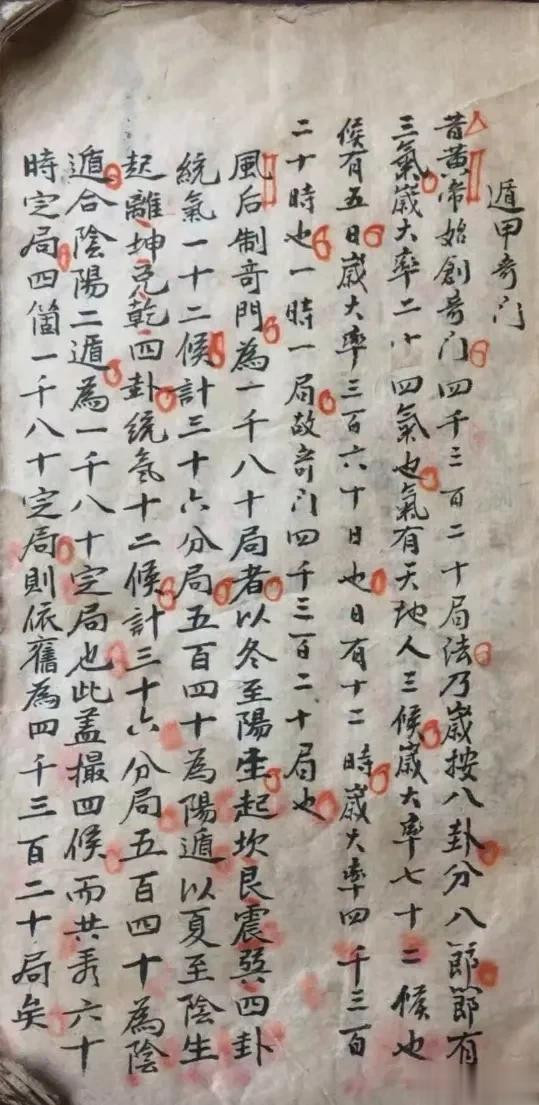 遁甲奇门
昔黄帝始創奇门四千三百二十局法乃歲按八卦分八節節有
三氣歲大率二十四氣也氣有天地人三候歲大率七十二候也
候有五日歲大率三百六十日也日有十二時歲大率四千三百
二十時也一時一局故奇门四千三百二十局也
風后制奇門為一千八十局者以冬至陽生起坎艮震巽四卦
統氣一十二候計三十六分局五百四十為陽遁以夏至陰生
起離坤兑乾四卦統氣十二候計三十六分局五百四十為陰
遁合陰陽二遁為一千八十定局也此盖撮四候而共看六十
時定局四箇一千八十定局則依舊為四千三百二十局矣